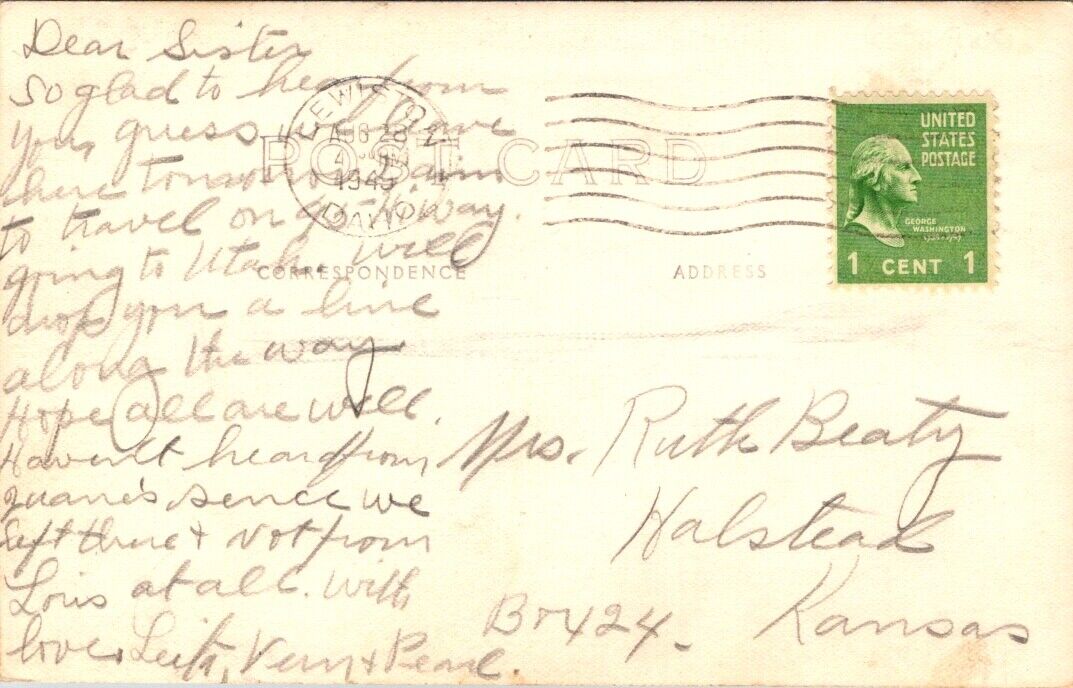 Dear Sister
So glad to hear from
you, guess we leave
here tomorrow 5am
to travel on our way.
going to Utah. Will
drop you a line
along the way.
Hope all are well.
Haven't heard from
sence we
left there + not from
Lois at all. With
love, Vern + Pearl.
LEWISTON
AUG 28
4 PM
1945
IDAHO
POST CARD
CORRESPONDENCE
ADDRESS
UNITED
STATES
POSTAGE
GEORGE
WASHINGTON
1 CENT 1
Mrs. Ruth Beaty
Halstead
Kansas
Box 424.